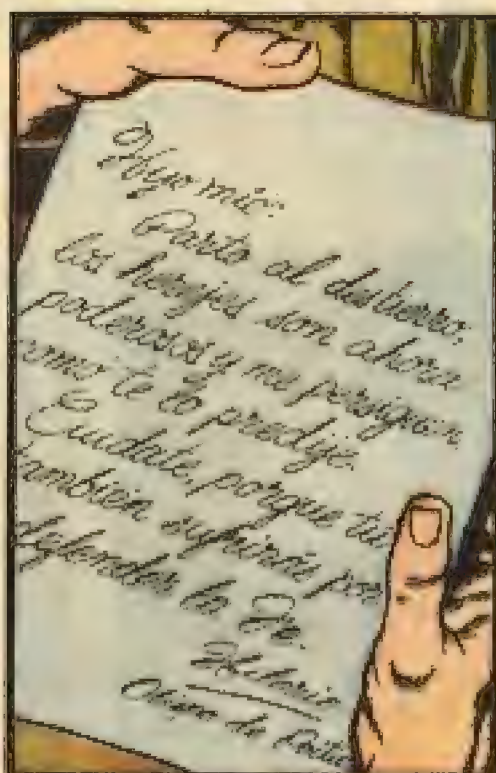 Hijo mío:
Parto al destierro,
los herejes son ahora
poderosos y me persiguen
como te lo predije.
Cuídate, porque tú
también sufrirás por
defender la Fe.
Hilario
Obispo de